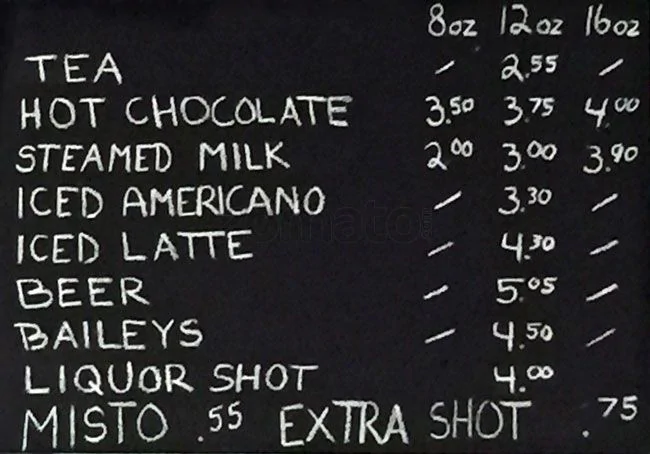 8oz 12oz 16oz
TEA / 2.55 /
HOT CHOCOLATE 3.50 3.75 4.00
STEAMED MILK 2.00 3.00 3.90
ICED AMERICANO / 3.30 /
ICED LATTE / 4.30 /
BEER / 5.05 /
BAILEYS / 4.50 /
LIQUOR SHOT 4.00
MISTO .55 EXTRA SHOT .75